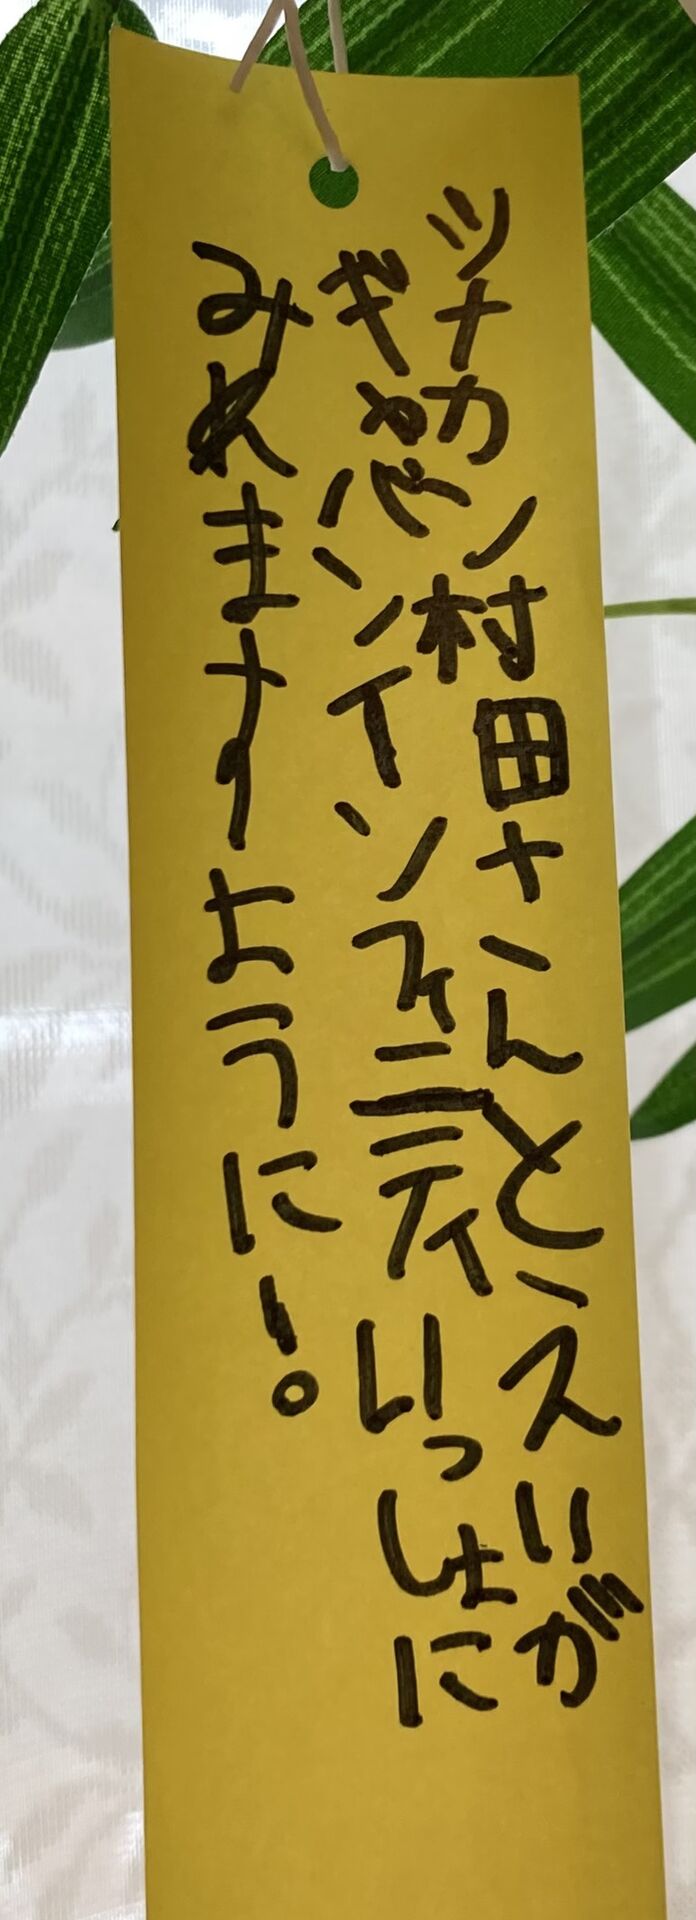 ツナカン村田さんと、えいが
ギャバンインフィニティいっしょに
みれますように！